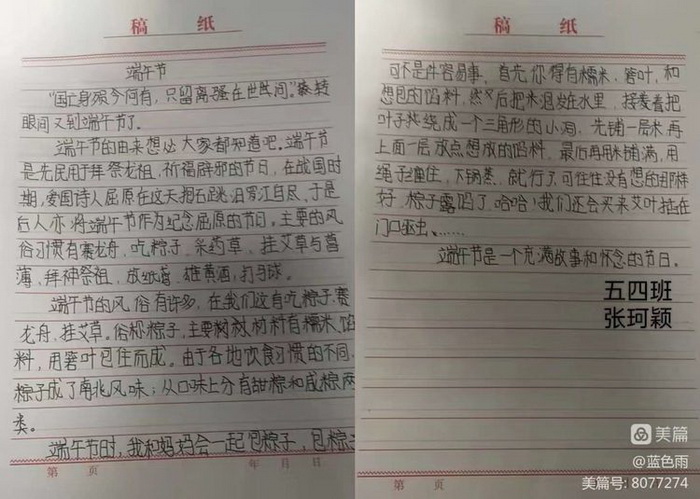 稿 纸
端午节
“国亡身殒今何有，只留离骚在世间。”转
眼间又到端午节了。
端午节的由来想必大家都知道吧。端午节
是先民用于拜祭龙祖，祈福辟邪的节日，在战国时
期，爱国诗人屈原在这天抱石跳汨罗江自尽，于是
后人亦将端午节作为纪念屈原的节日，主要的风
俗习惯有赛龙舟、吃粽子、采药草、挂艾草与菖
薄、拜神祭祖、放纸鸢、雄黄酒、打马球。
端午节的风俗有许多，在我们这有吃粽子、赛
龙舟、挂艾草。俗称粽子，主要材料有糯米、馅
料，用箬叶包住而成。由于各地饮食习惯的不同，
粽子成了南北风味；从口味上分有甜粽和咸粽两
类。
端午节时，我和妈妈会一起包粽子，包粽子
第 页 年 月 日
稿 纸
可不是件容易事。首先，你得有糯米、箬叶，和
想包的馅料，然后把米泡发在水里，接着把
叶子绕成一个三角形的小洞，先铺一层米再
上面一层放点想放的馅料。最后再用米铺满，用
绳子缠住，下锅蒸，就行了可往往没有想的那样
好，粽子露馅了，哈哈！我们还会买来艾叶插在
门口驱虫、……
端午节是一个充满故事和怀念的节日。
五四班
张珂颖
第 页
美篇
@蓝色雨
美篇号: 8077274